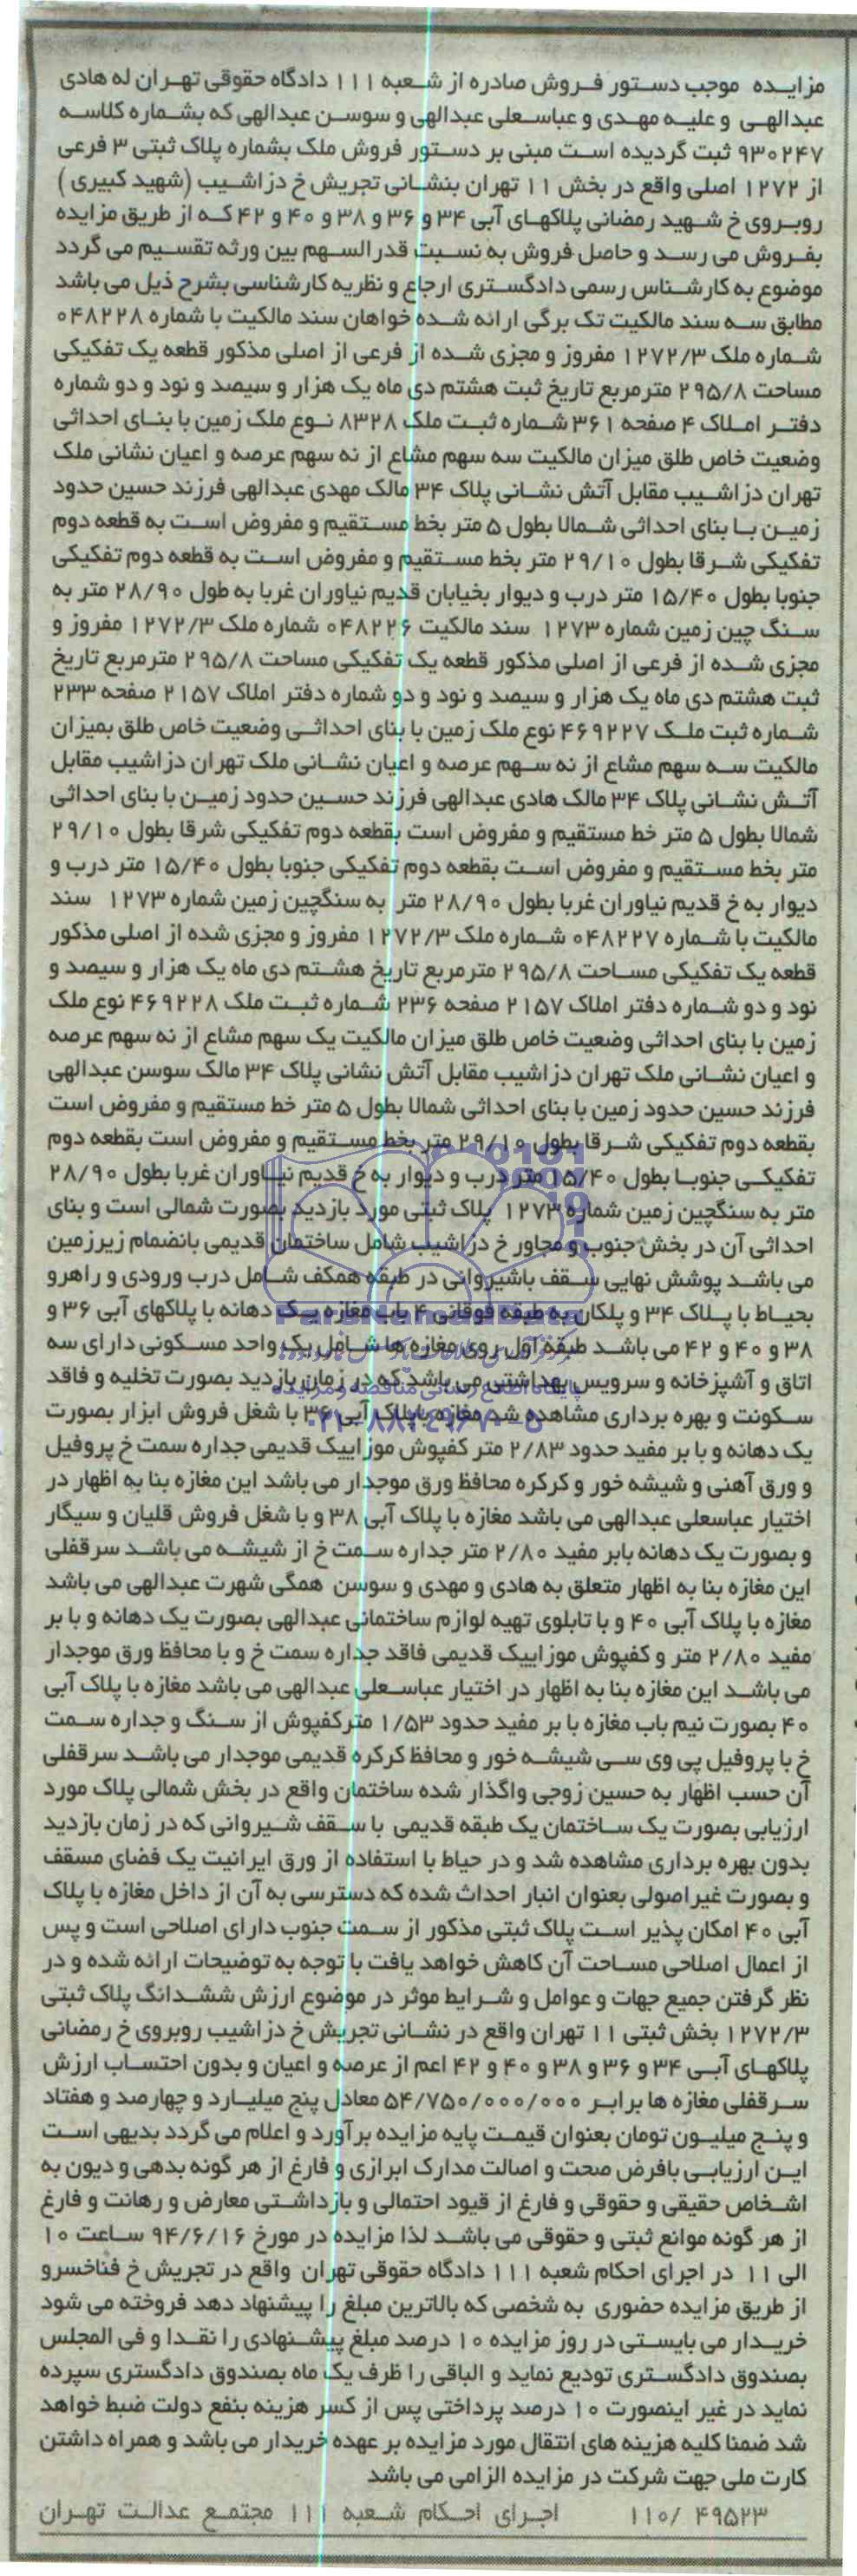 مزایده موجب دستور فروش صادره از شعبه ۱۱۱ دادگاه حقوقی تهران له هادی
عبدالهی و علیه مهدی و عباسعلی عبدالهی و سوسن عبدالهی که بشماره کلاسه
۹۳۰۲۴۷ ثبت گردیده است مبنی بر دستور فروش ملک بشماره پلاک ثبتی ۳ فرعی
از ۱۲۷۲ اصلی واقع در بخش ۱۱ تهران بنشانی تجریش خ دزاشیب (شهید کبیری)
روبروی خ شهید رمضانی پلاکهای آبی ۳۴ و ۳۶ و ۳۸ و ۴۰ و ۴۲ که از طریق مزایده
بفروش می رسد و حاصل فروش به نسبت قدرالسهم بین ورثه تقسیم می گردد
موضوع به کارشناس رسمی دادگستری ارجاع و نظریه کارشناسی بشرح ذیل می باشد
مطابق سه سند مالکیت تک برگی ارائه شده خواهان سند مالکیت با شماره ۰۴۸۲۲۸
شماره ملک ۱۲۷۲/۳ مفروز و مجزی شده از فرعی از اصلی مذکور قطعه یک تفکیکی
مساحت ۲۹۵/۸ مترمربع تاریخ ثبت هشتم دی ماه یک هزار و سیصد و نود و دو شماره
دفتر املاک ۴ صفحه ۳۶۱ شماره ثبت ملک ۸۳۲۸ نوع ملک زمین با بنای احداثی
وضعیت خاص طلق میزان مالکیت سه سهم مشاع از نه سهم عرصه و اعیان نشانی ملک
تهران دزاشیب مقابل آتش نشانی پلاک ۳۴ مالک مهدی عبدالهی فرزند حسین حدود
زمین با بنای احداثی شمالا بطول ۵ متر بخط مستقیم و مفروض است به قطعه دوم
تفکیکی شرقا بطول ۲۹/۱۰ متر بخط مستقیم و مفروض است به قطعه دوم تفکیکی
جنوبا بطول ۱۵/۴۰ متر درب و دیوار بخیابان قدیم نیاوران غربا به طول ۲۸/۹۰ متر به
سنگ چین زمین شماره ۱۲۷۳ سند مالکیت ۰۴۸۲۲۶ شماره ملک ۱۲۷۲/۳ مفروز و
مجزی شده از فرعی از اصلی مذکور قطعه یک تفکیکی مساحت ۲۹۵/۸ مترمربع تاریخ
ثبت هشتم دی ماه یک هزار و سیصد و نود و دو شماره دفتر املاک ۲۱۵۷ صفحه ۲۳۳
شماره ثبت ملک ۴۶۹۲۲۷ نوع ملک زمین با بنای احداثی وضعیت خاص طلق بمیزان
مالکیت سه سهم مشاع از نه سهم عرصه و اعیان نشانی ملک تهران دزاشیب مقابل
آتش نشانی پلاک ۳۴ مالک هادی عبدالهی فرزند حسین حدود زمین با بنای احداثی
شمالا بطول ۵ متر خط مستقیم و مفروض است بقطعه دوم تفکیکی شرقا بطول ۲۹/۱۰
متر بخط مستقیم و مفروض است بقطعه دوم تفکیکی جنوبا بطول ۱۵/۴۰ متر درب و
دیوار به خ قدیم نیاوران غربا بطول ۲۸/۹۰ متر به سنگچین زمین شماره ۱۲۷۳ سند
مالکیت با شماره ۰۴۸۲۲۷ شماره ملک ۱۲۷۲/۳ مفروز و مجزی شده از اصلی مذکور
قطعه یک تفکیکی مساحت ۲۹۵/۸ مترمربع تاریخ هشتم دی ماه یک هزار و سیصد و
نود و دو شماره دفتر املاک ۲۱۵۷ صفحه ۲۳۶ شماره ثبت ملک ۴۶۹۲۲۸ نوع ملک
زمین با بنای احداثی وضعیت خاص طلق میزان مالکیت یک سهم مشاع از نه سهم عرصه
و اعیان نشانی ملک تهران دزاشیب مقابل آتش نشانی پلاک ۳۴ مالک سوسن عبدالهی
فرزند حسین حدود زمین با بنای احداثی شمالا بطول ۵ متر خط مستقیم و مفروض است
بقطعه دوم تفکیکی شرقا بطول ۲۹/۱۰ متر بخط مستقیم و مفروض است بقطعه دوم
تفکیکی جنوبا بطول ۱۵/۴۰ متر درب و دیوار به خ قدیم نیاوران غربا بطول ۲۸/۹۰
متر به سنگچین زمین شماره ۱۲۷۳ پلاک ثبتی مورد بازدید بصورت شمالی است و بنای
احداثی آن در بخش جنوب و مجاور خ دزاشیب شامل ساختمان قدیمی بانضمام زیرزمین
می باشد پوشش نهایی سقف باشیروانی در طبقه همکف شامل درب ورودی و راهرو
بحیاط با پلاک ۳۴ و پلکان به طبقه فوقانی ۴ باب مغازه یک دهانه با پلاکهای آبی ۳۶ و
۳۸ و ۴۰ و ۴۲ می باشد طبقه اول روی مغازه ها شامل یک واحد مسکونی دارای سه
اتاق و آشپزخانه و سرویس بهداشتی می باشد که در زمان بازدید بصورت تخلیه و فاقد
سکونت و بهره برداری مشاهده شد مغازه با پلاک آبی ۳۶ با شغل فروش ابزار بصورت
یک دهانه و با بر مفید حدود ۲/۸۳ متر کفپوش موزاییک قدیمی جداره سمت خ پروفیل
و ورق آهنی و شیشه خور و کرکره محافظ ورق موجدار می باشد این مغازه بنا به اظهار در
اختیار عباسعلی عبدالهی می باشد مغازه با پلاک آبی ۳۸ و با شغل فروش قلیان و سیگار
و بصورت یک دهانه بابر مفید ۲/۸۰ متر جداره سمت خ از شیشه می باشد سرقفلی
این مغازه بنا به اظهار متعلق به هادی و مهدی و سوسن همگی شهرت عبدالهی می باشد
مغازه با پلاک آبی ۴۰ و با تابلوی تهیه لوازم ساختمانی عبدالهی بصورت یک دهانه و با بر
مفید ۲/۸۰ متر و کفپوش موزاییک قدیمی فاقد جداره سمت خ و با محافظ ورق موجدار
می باشد این مغازه بنا به اظهار در اختیار عباسعلی عبدالهی می باشد مغازه با پلاک آبی
۴۰ بصورت نیم باب مغازه با بر مفید حدود ۱/۵۳ مترکفپوش از سنگ و جداره سمت
خ با پروفیل پی وی سی شیشه خور و محافظ کرکره قدیمی موجدار می باشد سرقفلی
آن حسب اظهار به حسین زوجی واگذار شده ساختمان واقع در بخش شمالی پلاک مورد
ارزیابی بصورت یک ساختمان یک طبقه قدیمی با سقف شیروانی که در زمان بازدید
بدون بهره برداری مشاهده شد و در حیاط با استفاده از ورق ایرانیت یک فضای مسقف
و بصورت غیراصولی بعنوان انبار احداث شده که دسترسی به آن از داخل مغازه با پلاک
آبی ۴۰ امکان پذیر است پلاک ثبتی مذکور از سمت جنوب دارای اصلاحی است و پس
از اعمال اصلاحی مساحت آن کاهش خواهد یافت با توجه به توضیحات ارائه شده و در
نظر گرفتن جمیع جهات و عوامل و شرایط موثر در موضوع ارزش ششدانگ پلاک ثبتی
۱۲۷۲/۳ بخش ثبتی ۱۱ تهران واقع در نشانی تجریش خ دزاشیب روبروی خ رمضانی
پلاکهای آبی ۳۴ و ۳۶ و ۳۸ و ۴۰ و ۴۲ اعم از عرصه و اعیان و بدون احتساب ارزش
سرقفلی مغازه ها برابر ۵۴/۷۵۰/۰۰۰/۰۰۰ معادل پنج میلیارد و چهارصد و هفتاد
و پنج میلیون تومان بعنوان قیمت پایه مزایده برآورد و اعلام می گردد بدیهی است
این ارزیابی بافرض صحت و اصالت مدارک ابرازی و فارغ از هر گونه بدهی و دیون به
اشخاص حقیقی و حقوقی و فارغ از قیود احتمالی و بازداشتی معارض و رهانت و فارغ
از هر گونه موانع ثبتی و حقوقی می باشد لذا مزایده در مورخ ۹۴/۶/۱۶ ساعت ۱۰
الی ۱۱ در اجرای احکام شعبه ۱۱۱ دادگاه حقوقی تهران واقع در تجریش خ فناخسرو
از طریق مزایده حضوری به شخصی که بالاترین مبلغ را پیشنهاد دهد فروخته می شود
خریدار می بایستی در روز مزایده ۱۰ درصد مبلغ پیشنهادی را نقدا و فی المجلس
بصندوق دادگستری تودیع نماید و الباقی را ظرف یک ماه بصندوق دادگستری سپرده
نماید در غیر اینصورت ۱۰ درصد پرداختی پس از کسر هزینه بنفع دولت ضبط خواهد
شد ضمنا کلیه هزینه های انتقال مورد مزایده بر عهده خریدار می باشد و همراه داشتن
کارت ملی جهت شرکت در مزایده الزامی می باشد
۱۱۰/ ۴۹۵۲۳ اجرای احکام شعبه ۱۱۱ مجتمع عدالت تهران